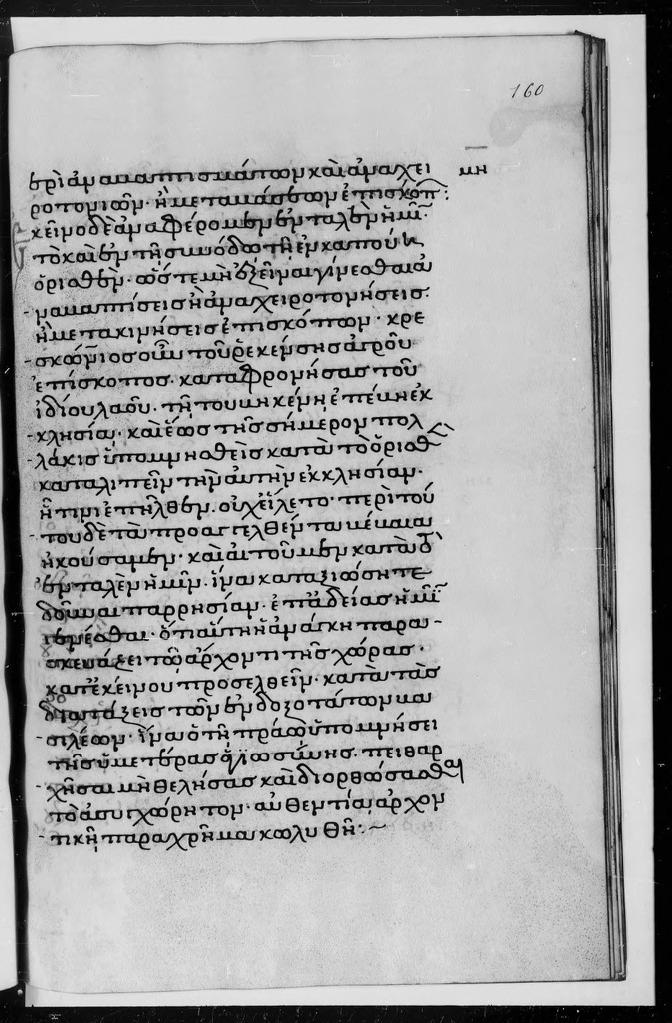 160
μη
βρὶ ἀναβαπτισμάτων καὶ ἀναχει
ροτονιῶν· ἢ μεταβάσεων ἐπισκόπ:
κεῖνο δὲ ἀναφέρομεν ἐνταλὲν ἡμῖν·
τὸ καὶ ἐν τῇ συνόδῳ τῇ ἐν καπούῃ
ὁρισθὲν· ὥστε μὴ ἐξεῖναι γίνεσθαι ἀ
ναβαπτίσεις ἢ ἀναχειροτονήσεις·
ἢ μετακινήσεις ἐπισκόπων· κρε
σκώνιος οὖν τοῦ ῥεκένσης ἀγροῦ
ἐπίσκοπος· καταφρονήσας τοῦ
ἰδίου λαοῦ· τῇ τουνηκένῃ ἐπέβη ἐκ
κλησίᾳ· καὶ ἕως τῆς σήμερον πολ
λάκις ὑπομνησθεὶς κατὰ τὸ ὁρισθὲν
καταλιπεῖν τὴν αὐτὴν ἐκκλησίαν·
ᾗ τινι ἐπῆλθεν· οὐχ εἵλετο· περὶ τού
του δὲ τὰ προαγγελθέντα βέβαια
ἠκούσαμεν· καὶ αἰτοῦμεν κατὰ τὸ
ἐνταλὲν ἡμῖν· ἵνα καταξιώσητε
δοῦναι παρρησίαν· ἐπ' ἀδείας ἡμῖν
γενέσθαι· ὅτι αὕτη ἡ ἀνάγκη παρα
σκευάζει τῷ ἄρχοντι τῆς χώρας·
κατ' ἐκείνου προσελθεῖν· κατὰ τὰς
διατάξεις τῶν ἐνδοξοτάτων βα
σιλέων· ἵνα ὁ τῇ πραῴᾳ ὑπομνήσει
τῆς ὑμετέρας ἁγιωσύνης· πειθαρ
χῆσαι μὴ θελήσας καὶ διορθώσασθαι
τὸ ἀσυγχώρητον· αὐθεντίᾳ ἀρχον
τικῇ παραχρῆμα κωλυθῇ:~